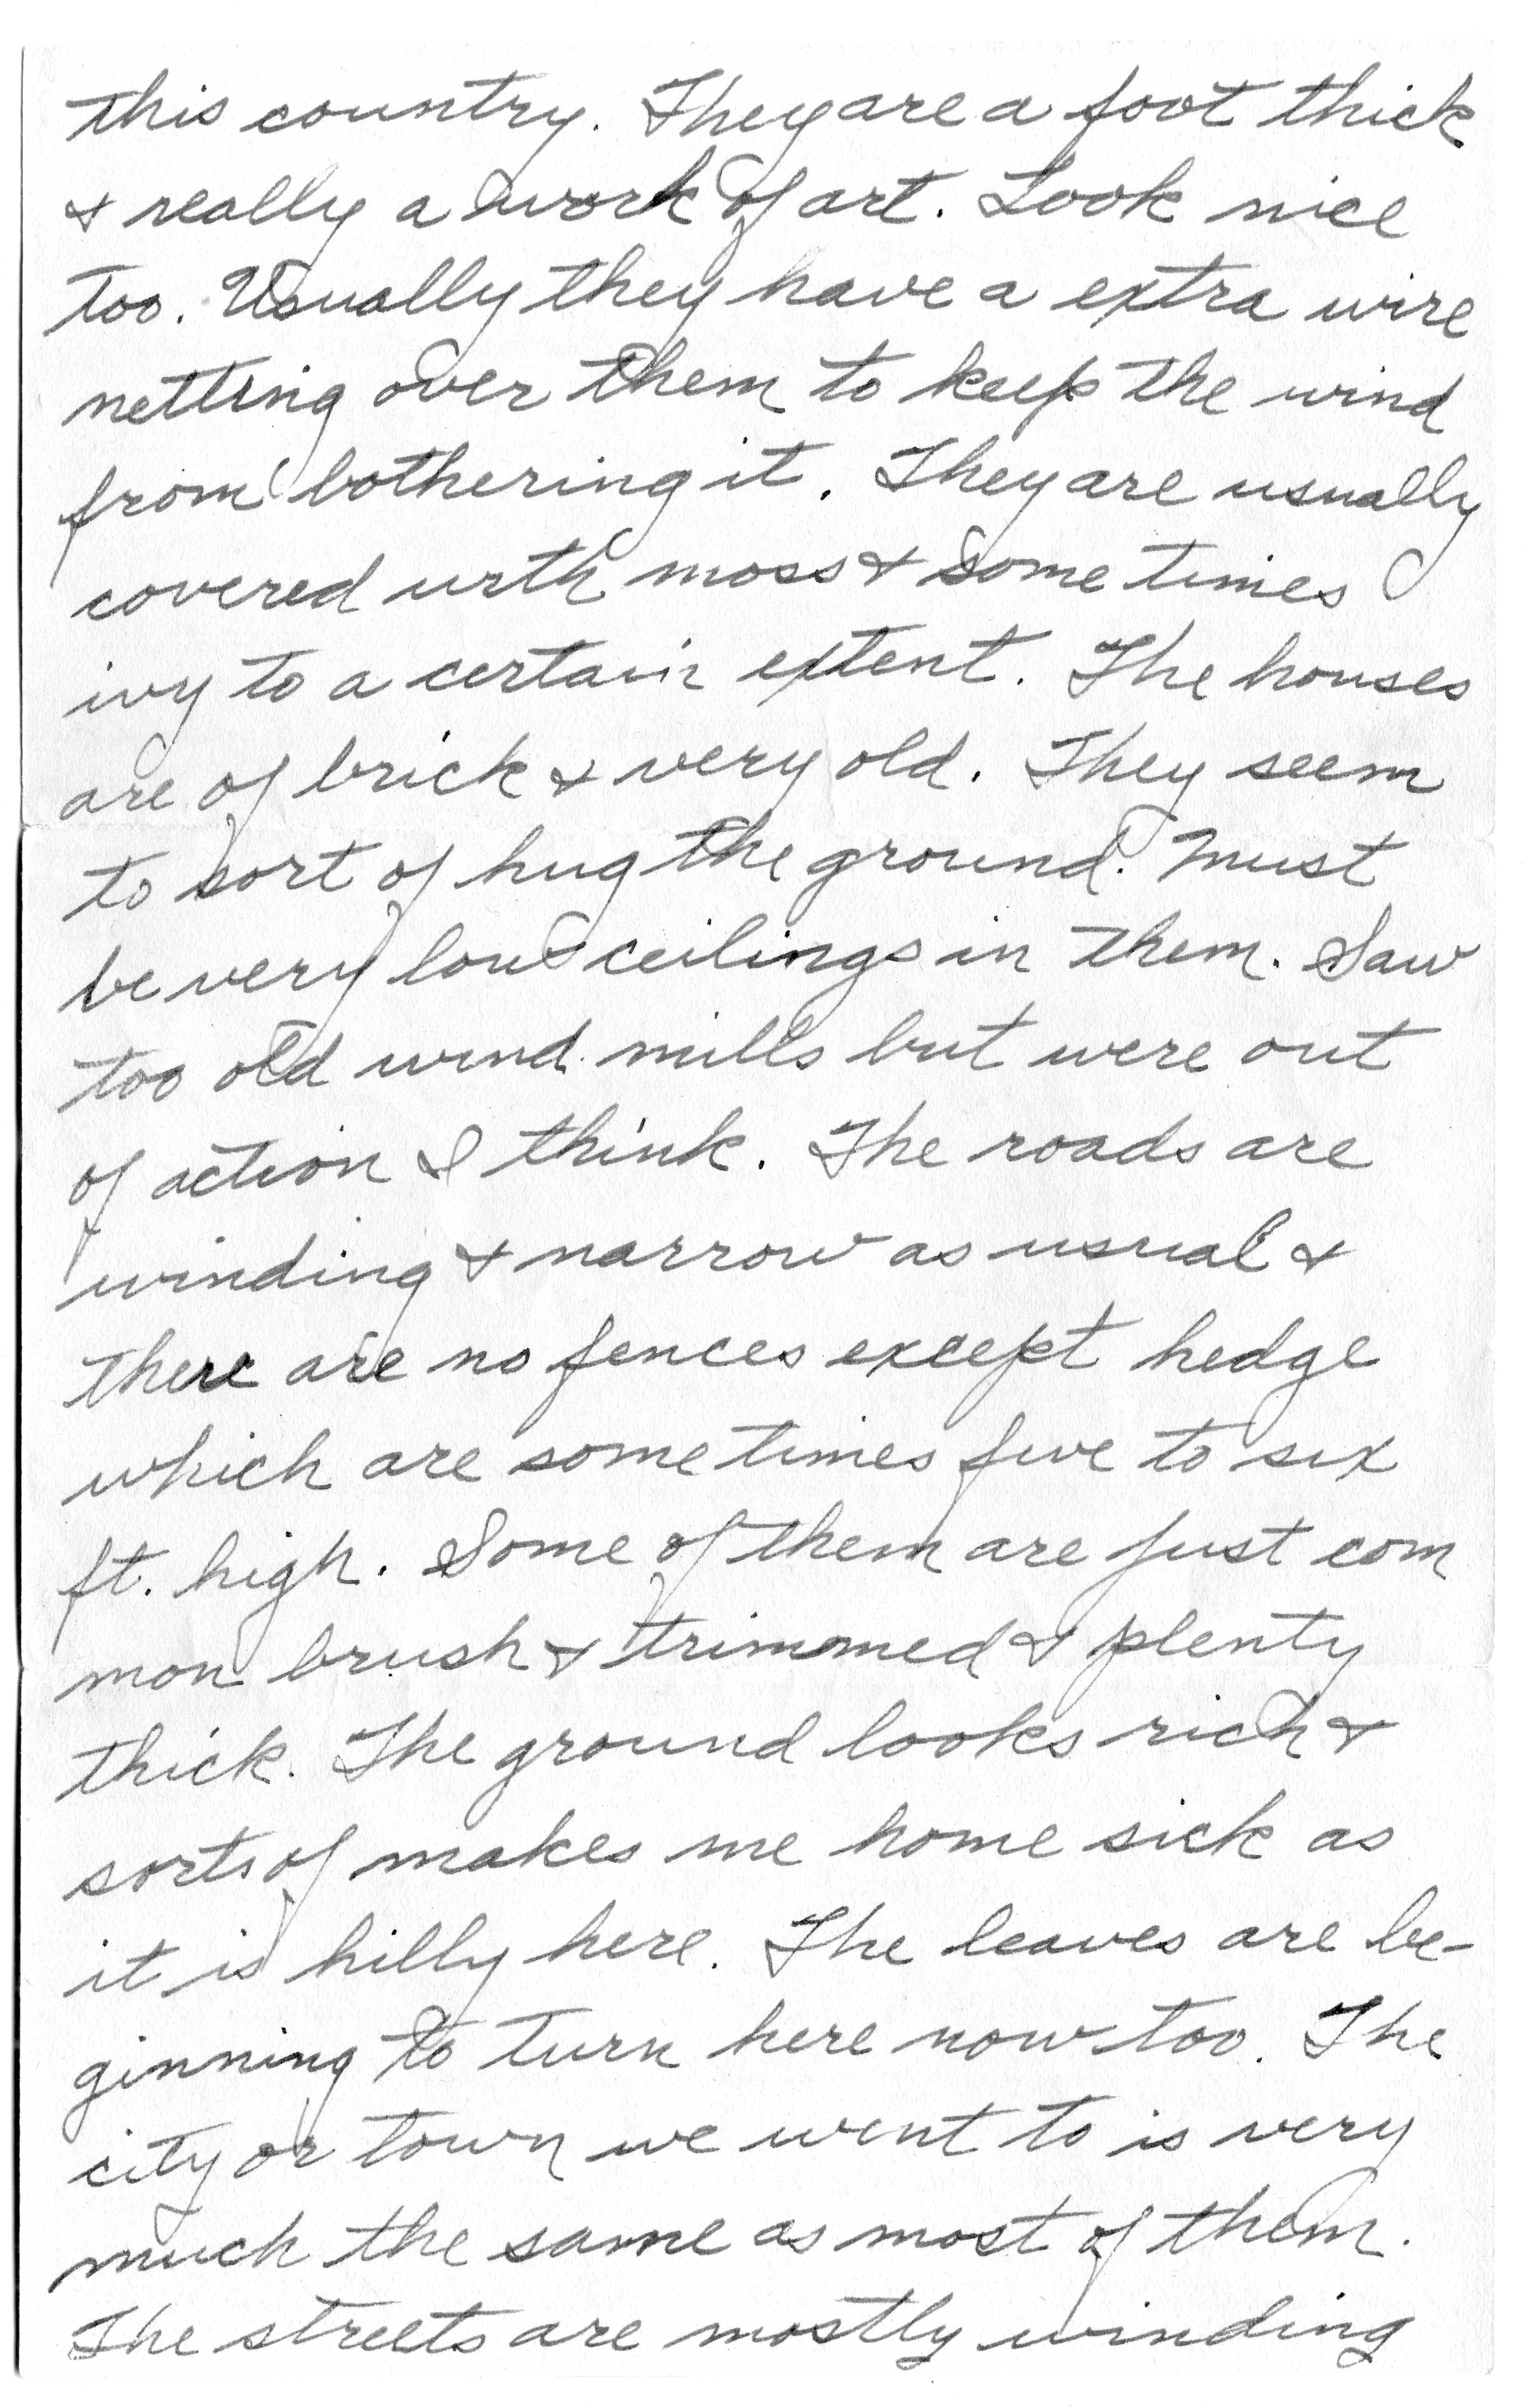 this country. They are a foot thick
& really a work of art. Look nice
too. Usually they have a extra wire
netting over them to keep the wind
from bothering it. They are usually
covered with moss & some times
ivy to a certain extent. The houses
are of brick & very old. They seem
to sort of hug the ground. Must
be very low ceilings in them. Saw
too old wind mills but were out
of action I think. The roads are
winding & narrow as usual &
there are no fences except hedge
which are some times five to six
ft. high. Some of them are just com
mon brush & trimmed & plenty
thick. The ground looks rich &
sorts of makes me home sick as
it is hilly here. The leaves are be-
ginning to turn here now too. The
city or town we went to is very
much the same as most of them.
The streets are mostly winding